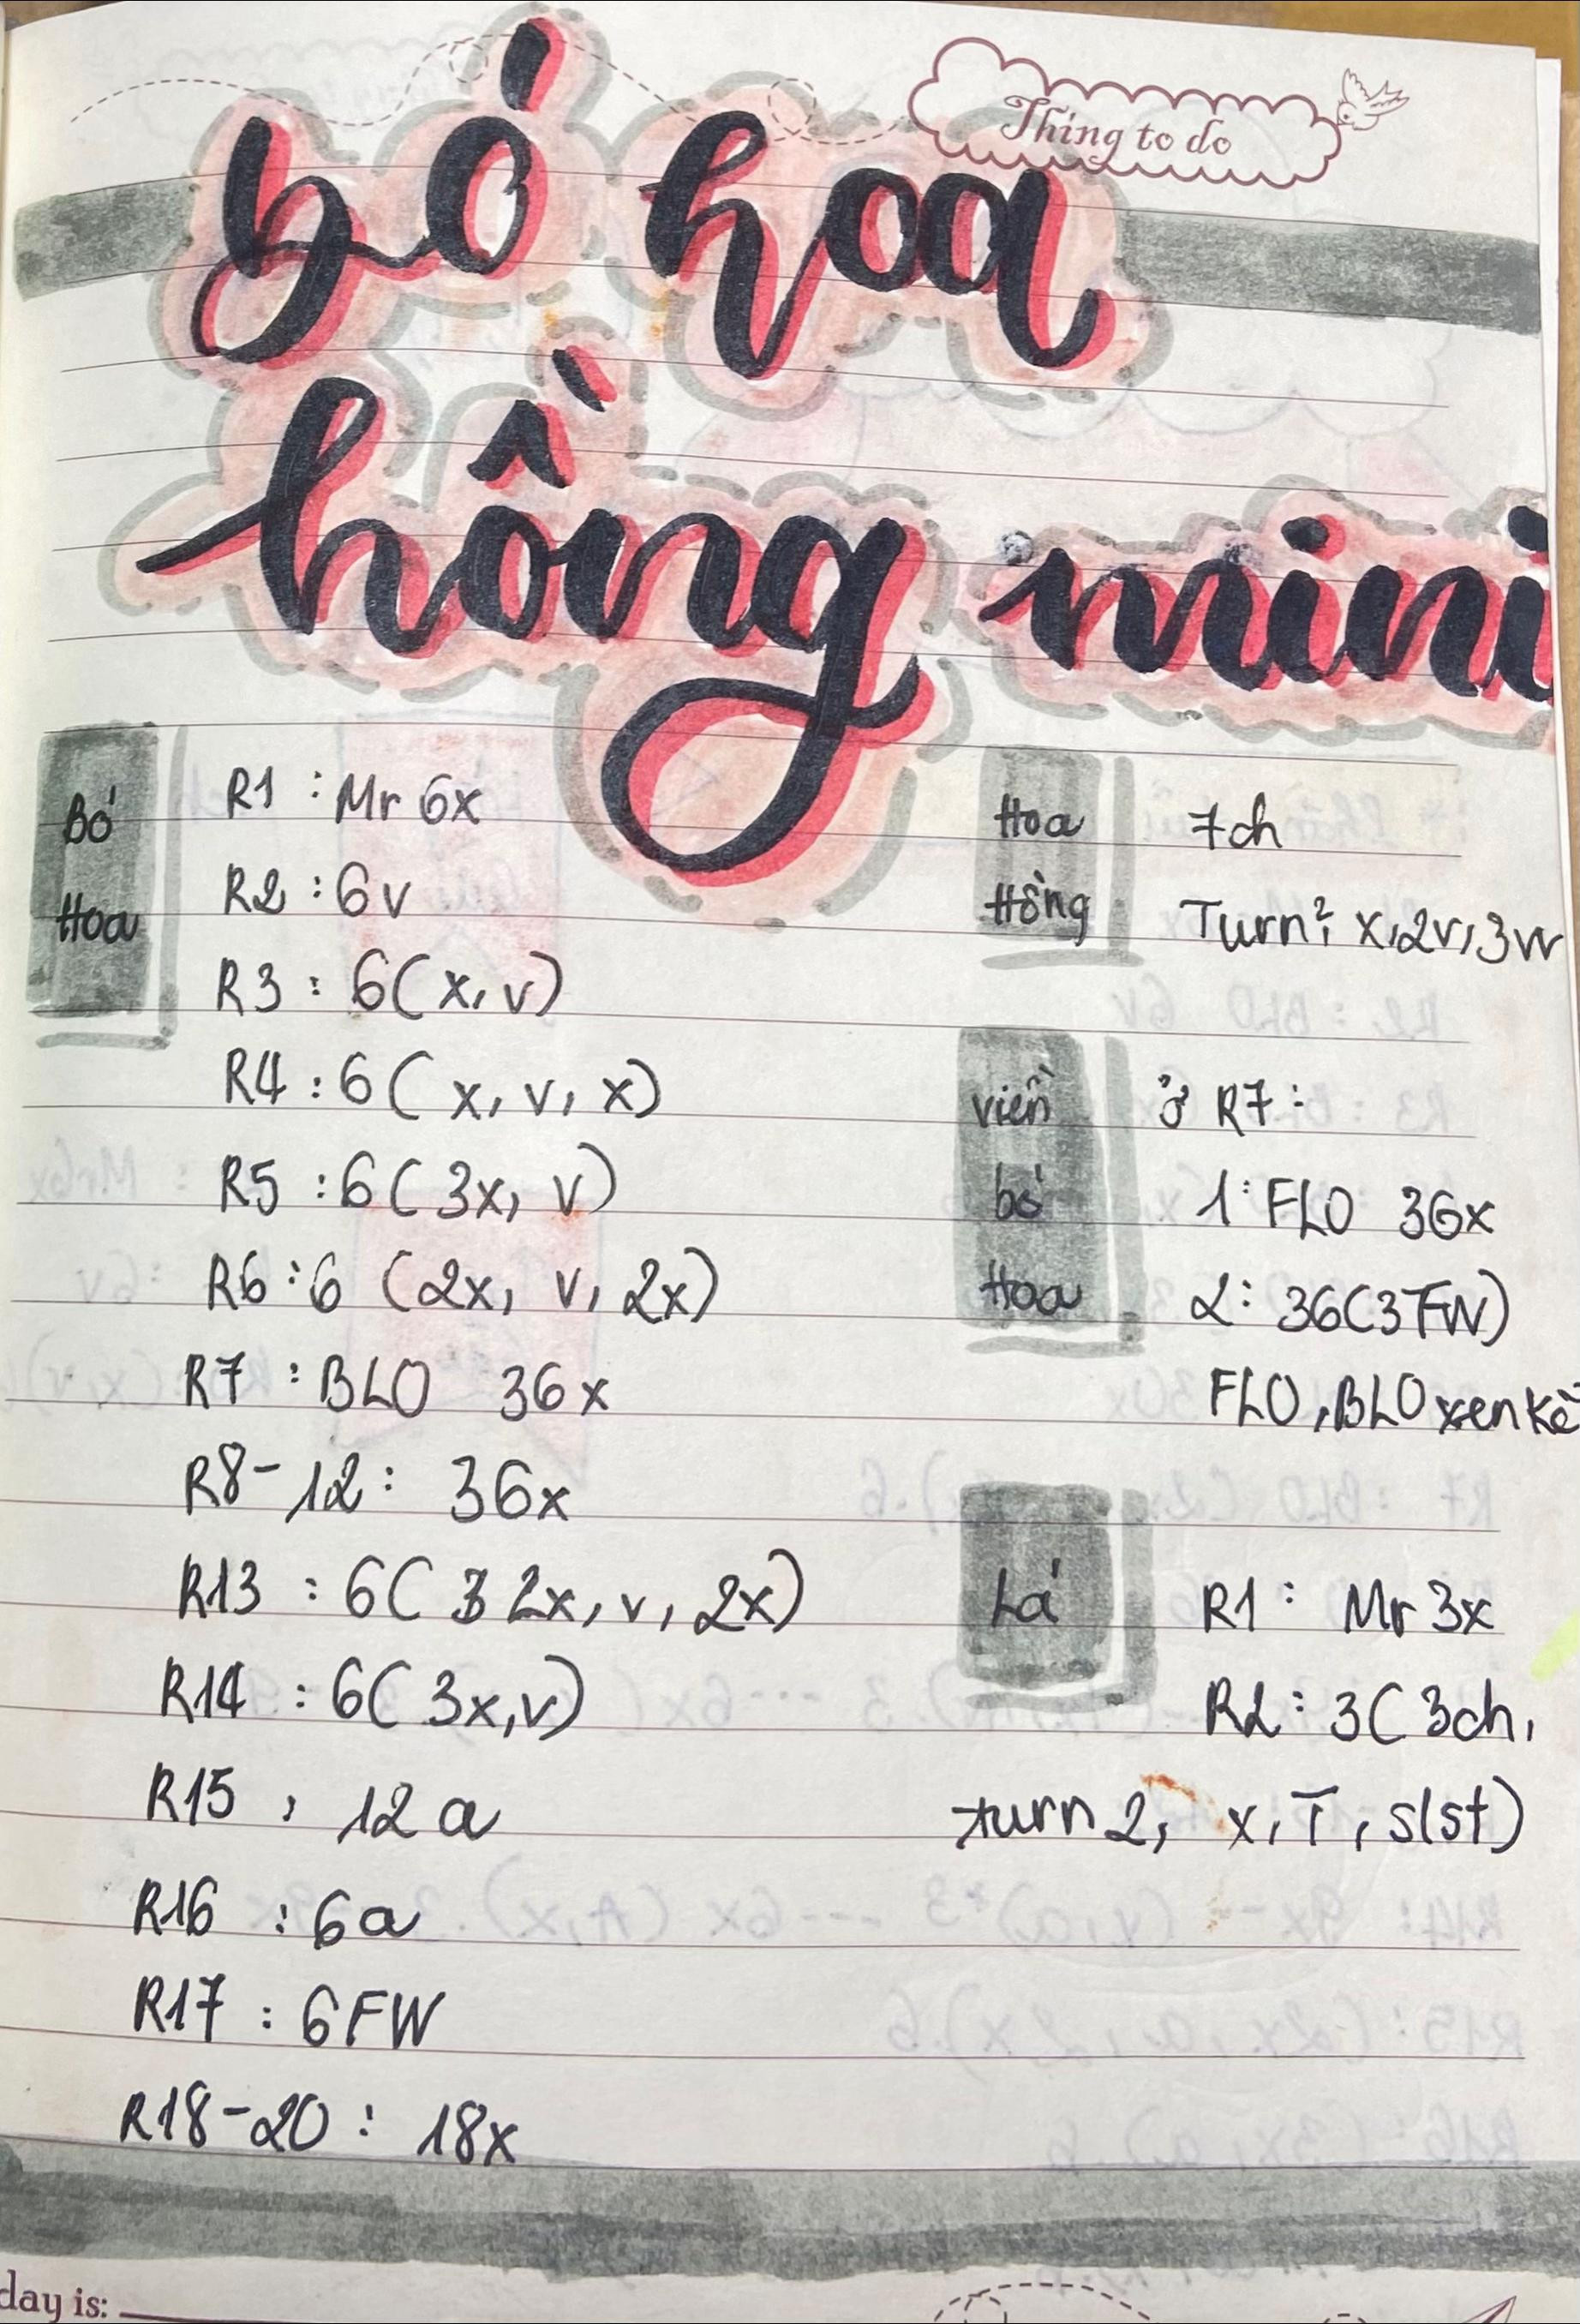 Thing to do
bó hoa
hồng mini
Bó
Hoa
R1 : Mr 6x
R2 : 6v
R3 : 6(x, v)
R4 : 6(x, v, x)
R5 : 6(3x, v)
R6 : 6 (2x, v, 2x)
R7 : BLO 36x
R8-12 : 36x
R13 : 6( 2x, v, 2x)
R14 : 6(3x, v)
R15 : 12a
R16 : 6a
R17 : 6FW
R18-20 : 18x
Hoa
Hồng
7ch
Turn2, x, 2v, 3w
viền
bó
Hoa
ở R7 :
1: FLO 36x
2: 36(3FW)
FLO, BLO xen kẽ
Lá
R1 : Mr 3x
R2 : 3(3ch,
turn 2, x, T, slst)
day is: